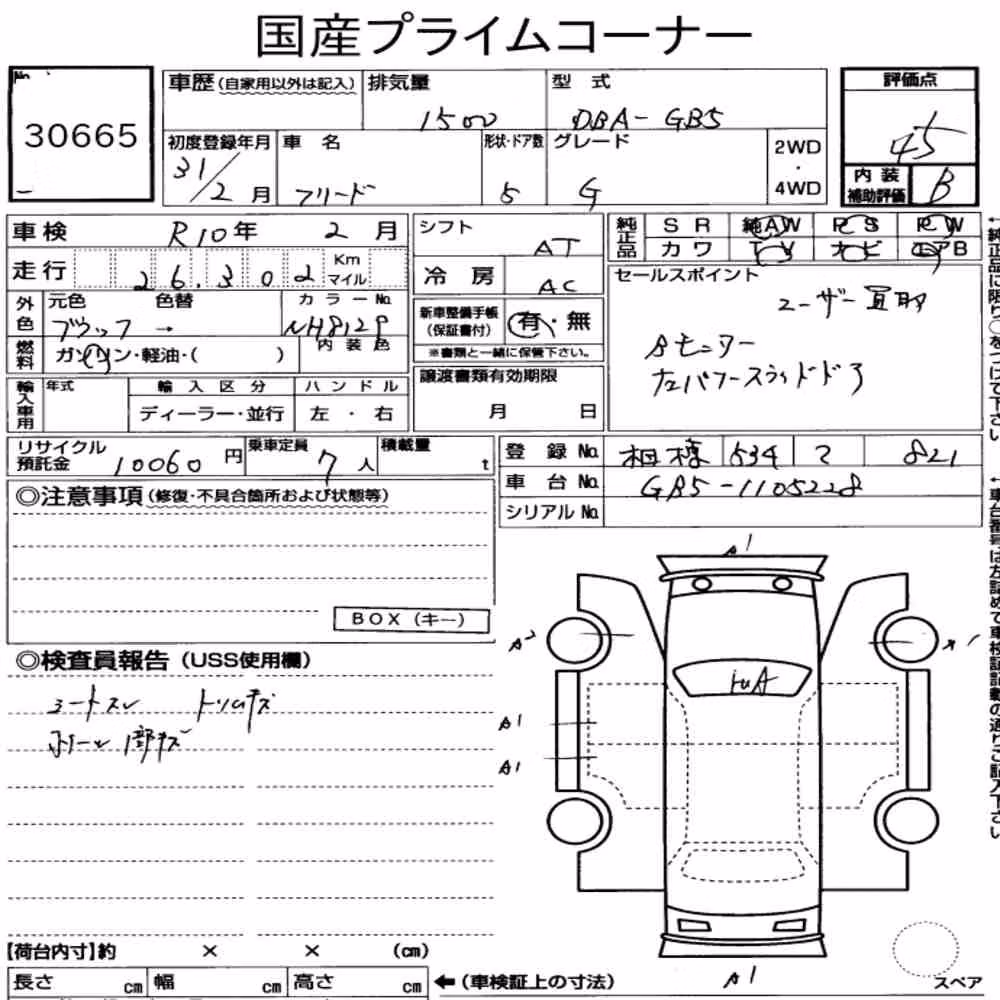 国産プライムコーナー
No.
30665
車歴(自家用以外は記入)
排気量
1500
型式
DBA-GB5
評価点
4.5
初度登録年月
31/2月
車名
フリード
形状・ドア数
5
グレード
G
2WD
・
4WD
内装
補助評価
B
車検 R10年 2月
走行 26,302 Km マイル
外色 元色 色替 カラーNo.
ブラック → NH812P
燃料 ガソリン・軽油・( ) 内装色
輸入車用 年式 輸入区分 ハンドル
ディーラー・並行 左・右
シフト AT
冷房 AC
新車整備手帳
(保証書付) 有・無
※書類と一緒に保管下さい。
譲渡書類有効期限
月 日
純正品 SR 純AW PS PW
カワ TV ナビ エアB
セールスポイント
ユーザー買取
8モニター
左右パワースライドドア
←純正品に限り○をつけて下さい
リサイクル
預託金 10060円
乗車定員 7人
積載量 t
登録No. 相模 534 821
車台No. GB5-1105228
シリアルNo.
←車台番号は左詰めで車検証記載の通りご記入下さい
◎注意事項(修復・不具合箇所および状態等)
BOX(キー)
◎検査員報告(USS使用欄)
シートスレ トリムキズ
ホイール1部キズ
A1
A2
A1
A1
A1
【荷台内寸】約 × × (cm)
長さ cm 幅 cm 高さ cm
←(車検証上の寸法)
スペア